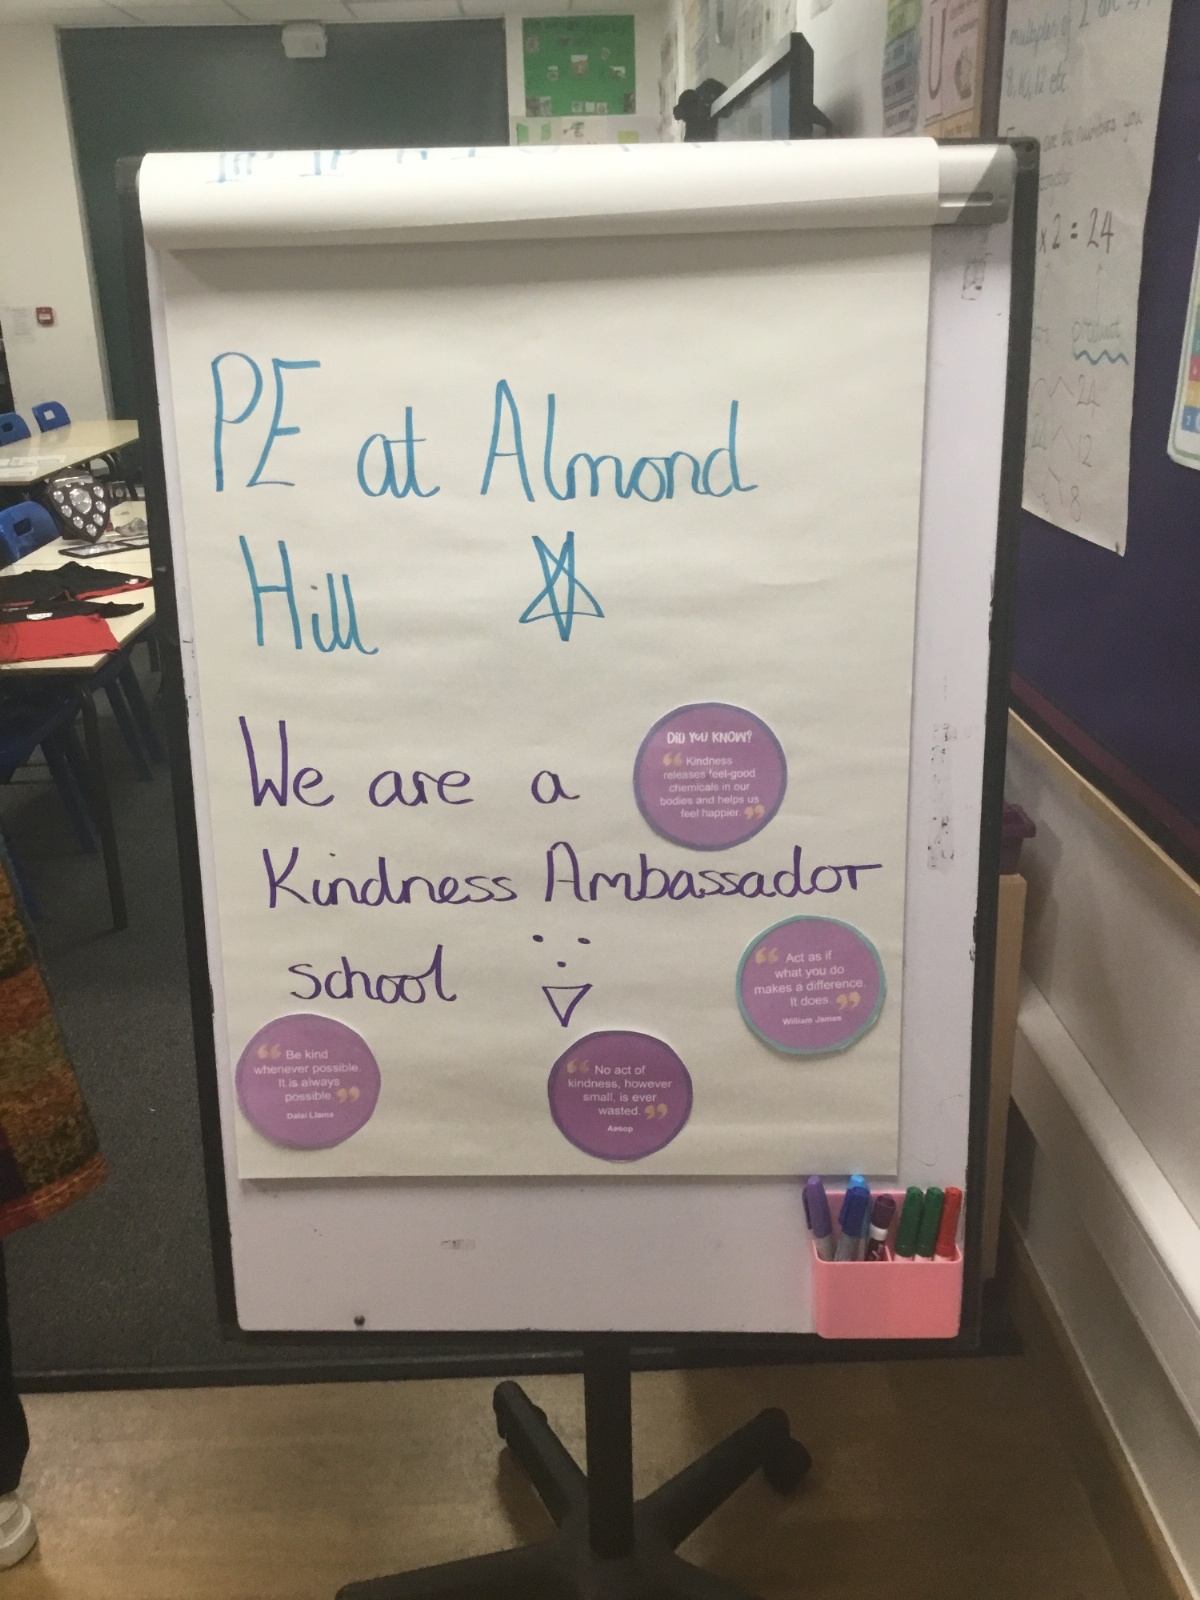 PE at Almond
Hill
We are a
Kindness Ambassador
school
DiD YOU KNOW?
“ Kindness
releases feel-good
chemicals in our
bodies and helps us
feel happier. ”
“ Act as if
what you do
makes a difference.
It does. ”
William James
“ Be kind
whenever possible.
It is always
possible. ”
Dalai Llama
“ No act of
kindness, however
small, is ever
wasted. ”
Aesop
multiples of 2
8, 10, 12 etc
are the numbers you
x 2 = 24
product
24
12
8
U